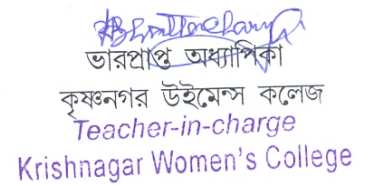 ভারপ্রাপ্ত অধ্যাপিকা
কৃষ্ণনগর উইমেন্স কলেজ
Teacher-in-charge
Krishnagar Women's College